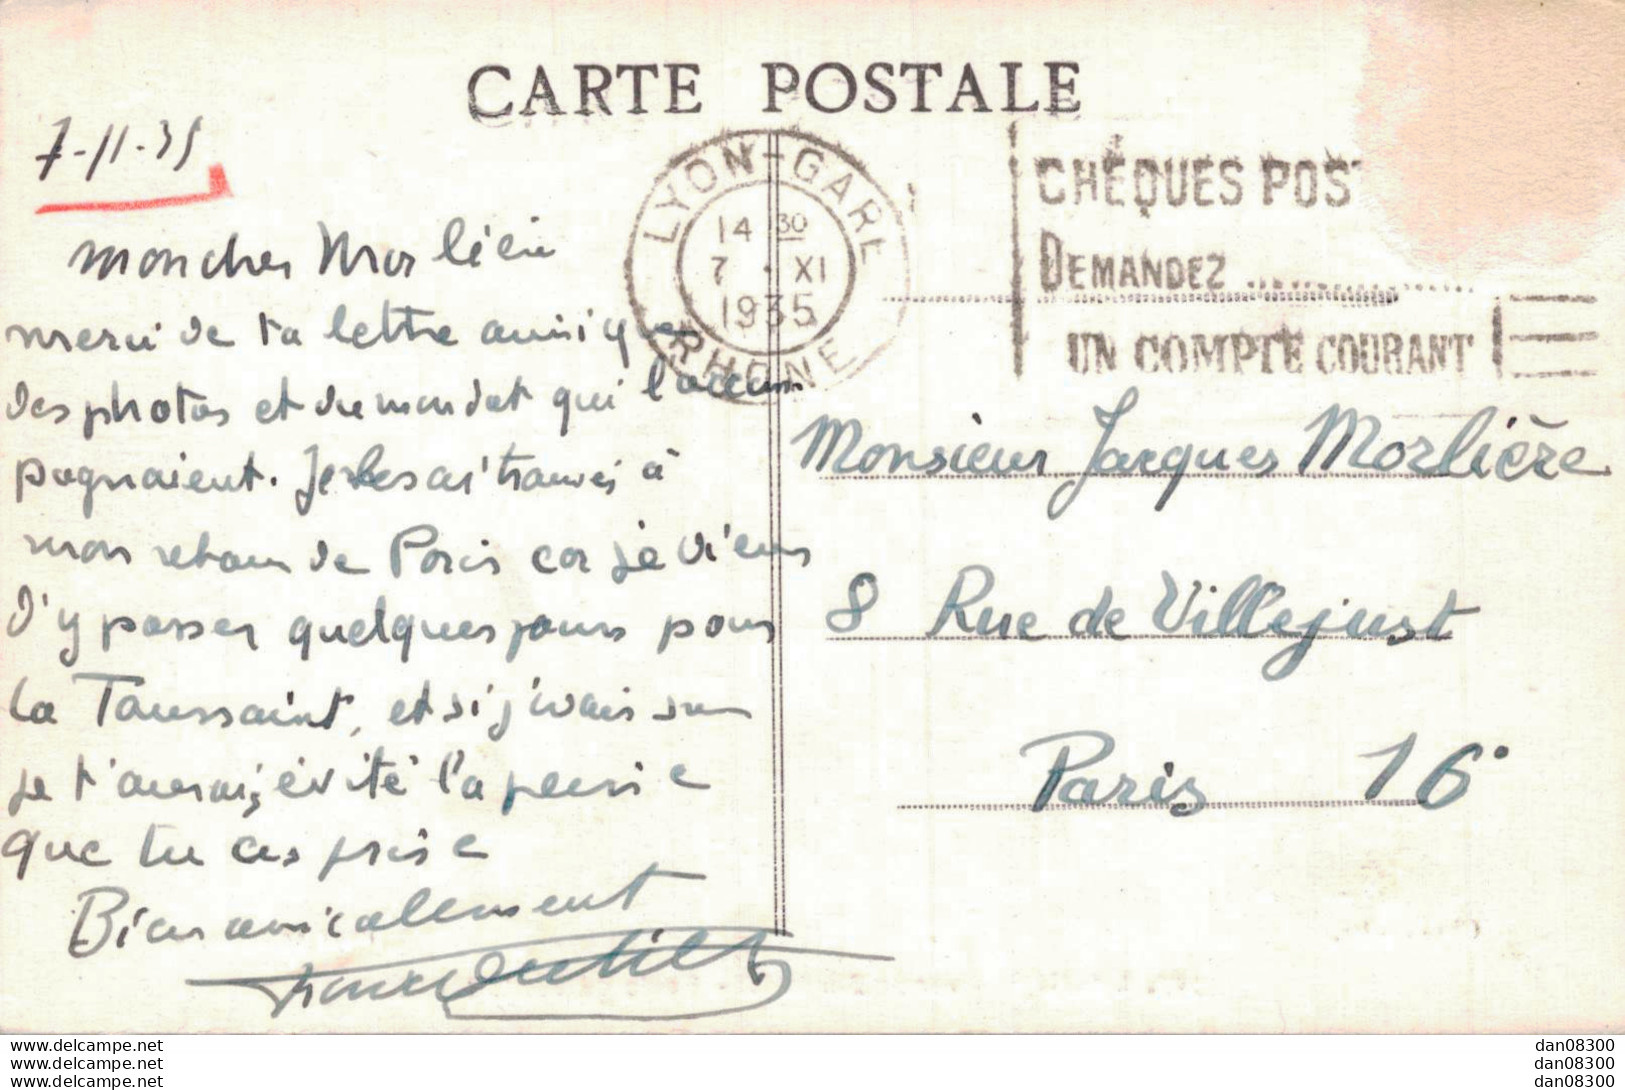 CARTE POSTALE
7-11-35
LYON-GARE
14 30
7 · XI
1935
RHONE
CHÈQUES POST
DEMANDEZ
UN COMPTE COURANT
mon cher Morlière
merci de ta lettre ainsi que
des photos et du mandat qui l'accom
pagnaient. Je les ai trouvés à
mon retour de Paris car je viens
d'y passer quelques jours pour
la Toussaint, et si j'avais su
je t'aurai évité la peine
que tu as prise
Bien amicalement
Monsieur Jacques Morlière
8 Rue de Villejust
Paris 16°
www.delcampe.net
www.delcampe.net
www.delcampe.net
dan08300
dan08300
dan08300